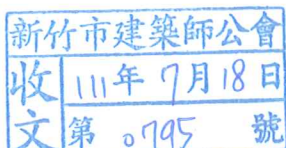 新竹市建築師公會
收文
111年7月18日
第0795號